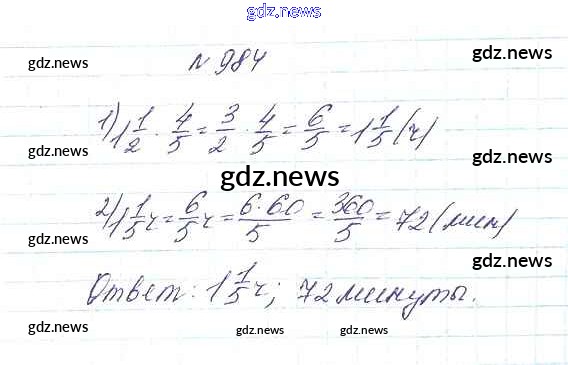 gdz.news
gdz.news № 984 gdz.news
1) 1 1/2 · 4/5 = 3/2 · 4/5 = 6/5 = 1 1/5 (ч)
gdz.news gdz.news
gdz.news
2) 1 1/5 ч = 6/5 ч = 6·60/5 = 360/5 = 72 (мин)
gdz.news gdz.news
Ответ: 1 1/5 ч; 72 минуты.
gdz.news gdz.news gdz.news gdz.news